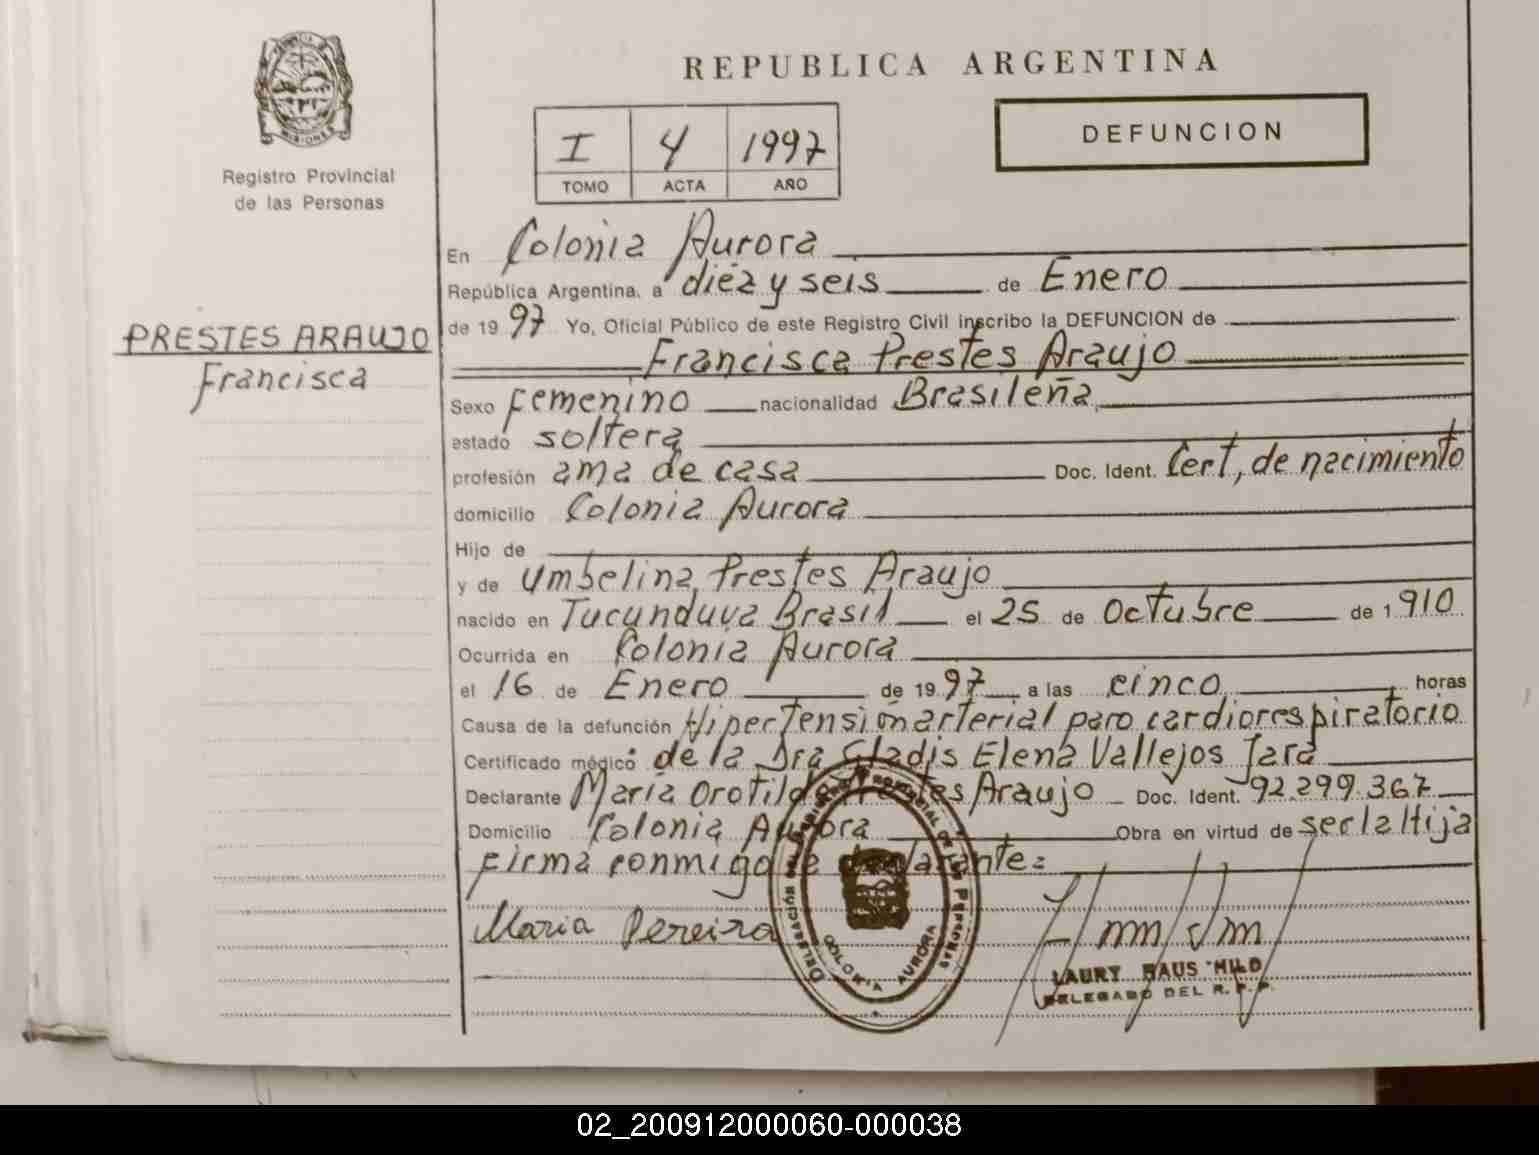 REPUBLICA ARGENTINA
MISIONES
Registro Provincial
de las Personas
I 4 1997
TOMO ACTA AÑO
DEFUNCION
PRESTES ARAUJO
Francisca
En Colonia Aurora
República Argentina, a diéz y seis de Enero
de 1997 Yo, Oficial Público de este Registro Civil inscribo la DEFUNCION de
Francisca Prestes Araujo
Sexo Femenino nacionalidad Brasileña
estado soltera
profesión ama de casa Doc. Ident. Cert, de nacimiento
domicilio Colonia Aurora
Hijo de
y de Umbelina Prestes Araujo
nacido en Tucunduva Brasil el 25 de Octubre de 1910
Ocurrida en Colonia Aurora
el 16 de Enero de 1997 a las cinco horas
Causa de la defunción Hipertensión arterial paro cardiorrespiratorio
Certificado médico de la Dra Gladis Elena Vallejos Jara
Declarante María Orotilde Prestes Araujo Doc. Ident. 92.299.367
Domicilio Colonia Aurora Obra en virtud de ser la Hija
Firma conmigo le declarante=
Maria Pereira
DELEGACIÓN DEL REGISTRO PROVINCIAL DE LAS PERSONAS
COLONIA AURORA
LAURY HILD
DELEGADO DEL R. P. P.
02_200912000060-000038